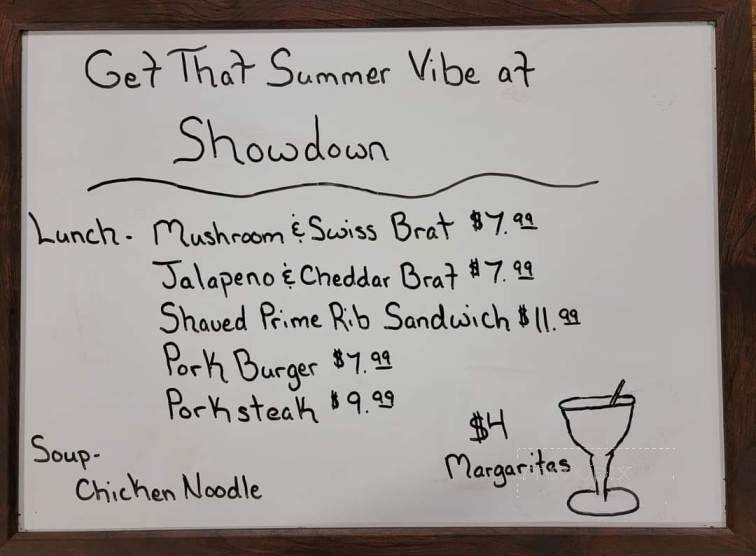 Get That Summer Vibe at
Showdown
Lunch- Mushroom & Swiss Brat $7.99
Jalapeno & Cheddar Brat $7.99
Shaved Prime Rib Sandwich $11.99
Pork Burger $7.99
Porksteak $9.99
$4
Margaritas
Soup-
Chicken Noodle